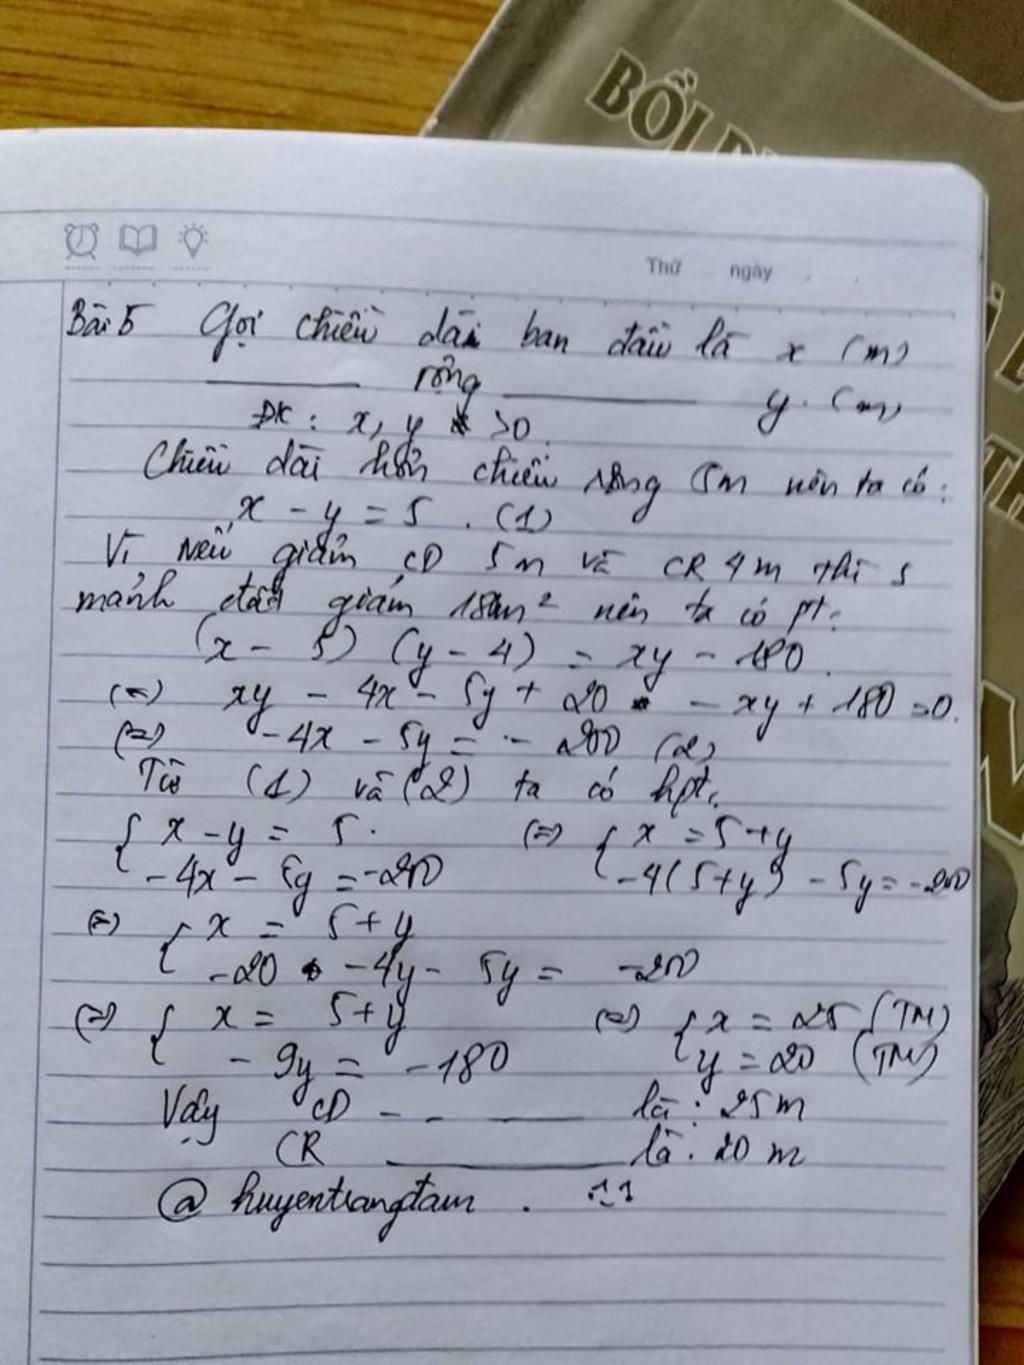 BỒI D
Thứ ngày
Bài 5 Gọi chiều dài ban đầu là x (m)
rộng y (m)
ĐK: x, y >0.
Chiều dài hơn chiều rộng 5m nên ta có:
x - y = 5 . (1)
Vì nếu giảm CD 5m và CR 4m thì S
mảnh đất giảm 180m² nên ta có pt:
(x - 5) (y - 4) = xy - 180.
(=) xy - 4x - 5y + 20 - xy + 180 =0.
(=) -4x - 5y = - 200 (2)
Từ (1) và (2) ta có hpt:
{ x - y = 5. (=) { x = 5+y
-4x - 5y = -200 -4(5+y) - 5y = -200
(=) { x = 5+y
-20 -4y - 5y = -200
(=) { x = 5+y (=) { x = 25 (TM)
-9y = -180 y = 20 (TM)
Vậy CD - - là: 25m
CR là: 20 m
@ huyentrangđam .